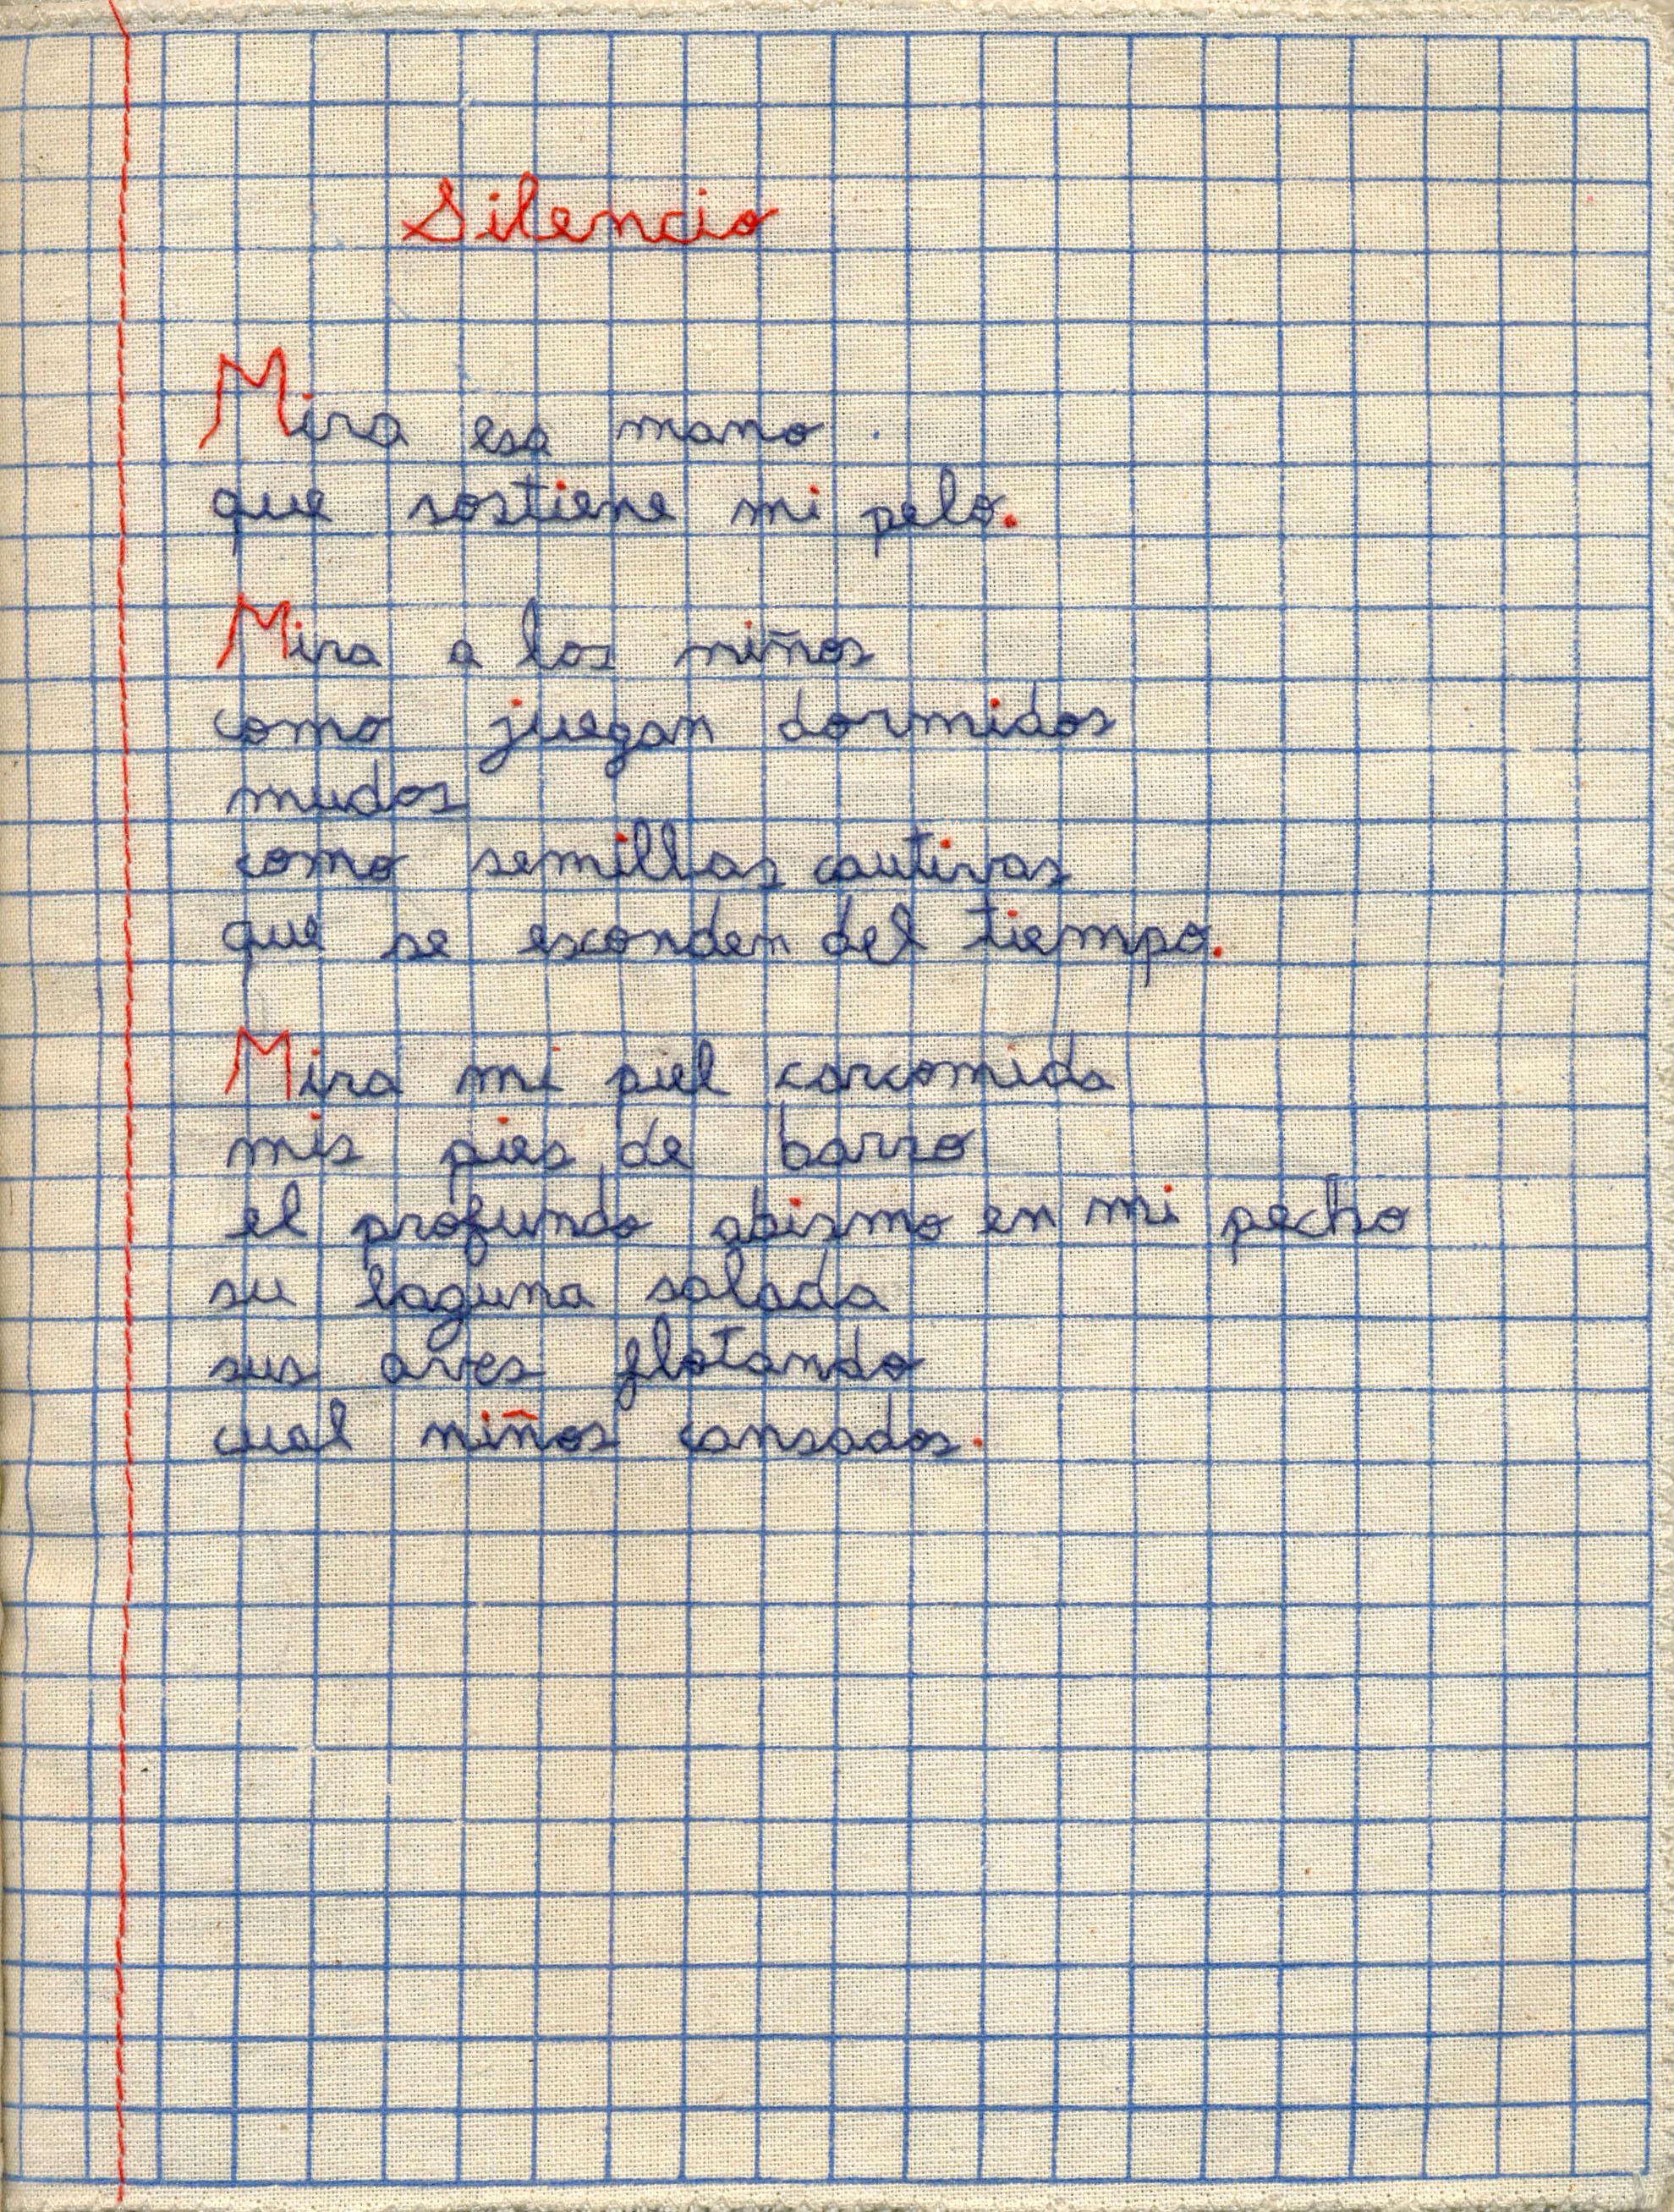 Silencio
Mira esa mano
que sostiene mi pelo.
Mira a los niños
como juegan dormidos
mudos
como semillas cautivas
que se esconden del tiempo.
Mira mi piel carcomida
mis pies de barro
el profundo abismo en mi pecho
su laguna salada
sus aves flotando
cual niños cansados.